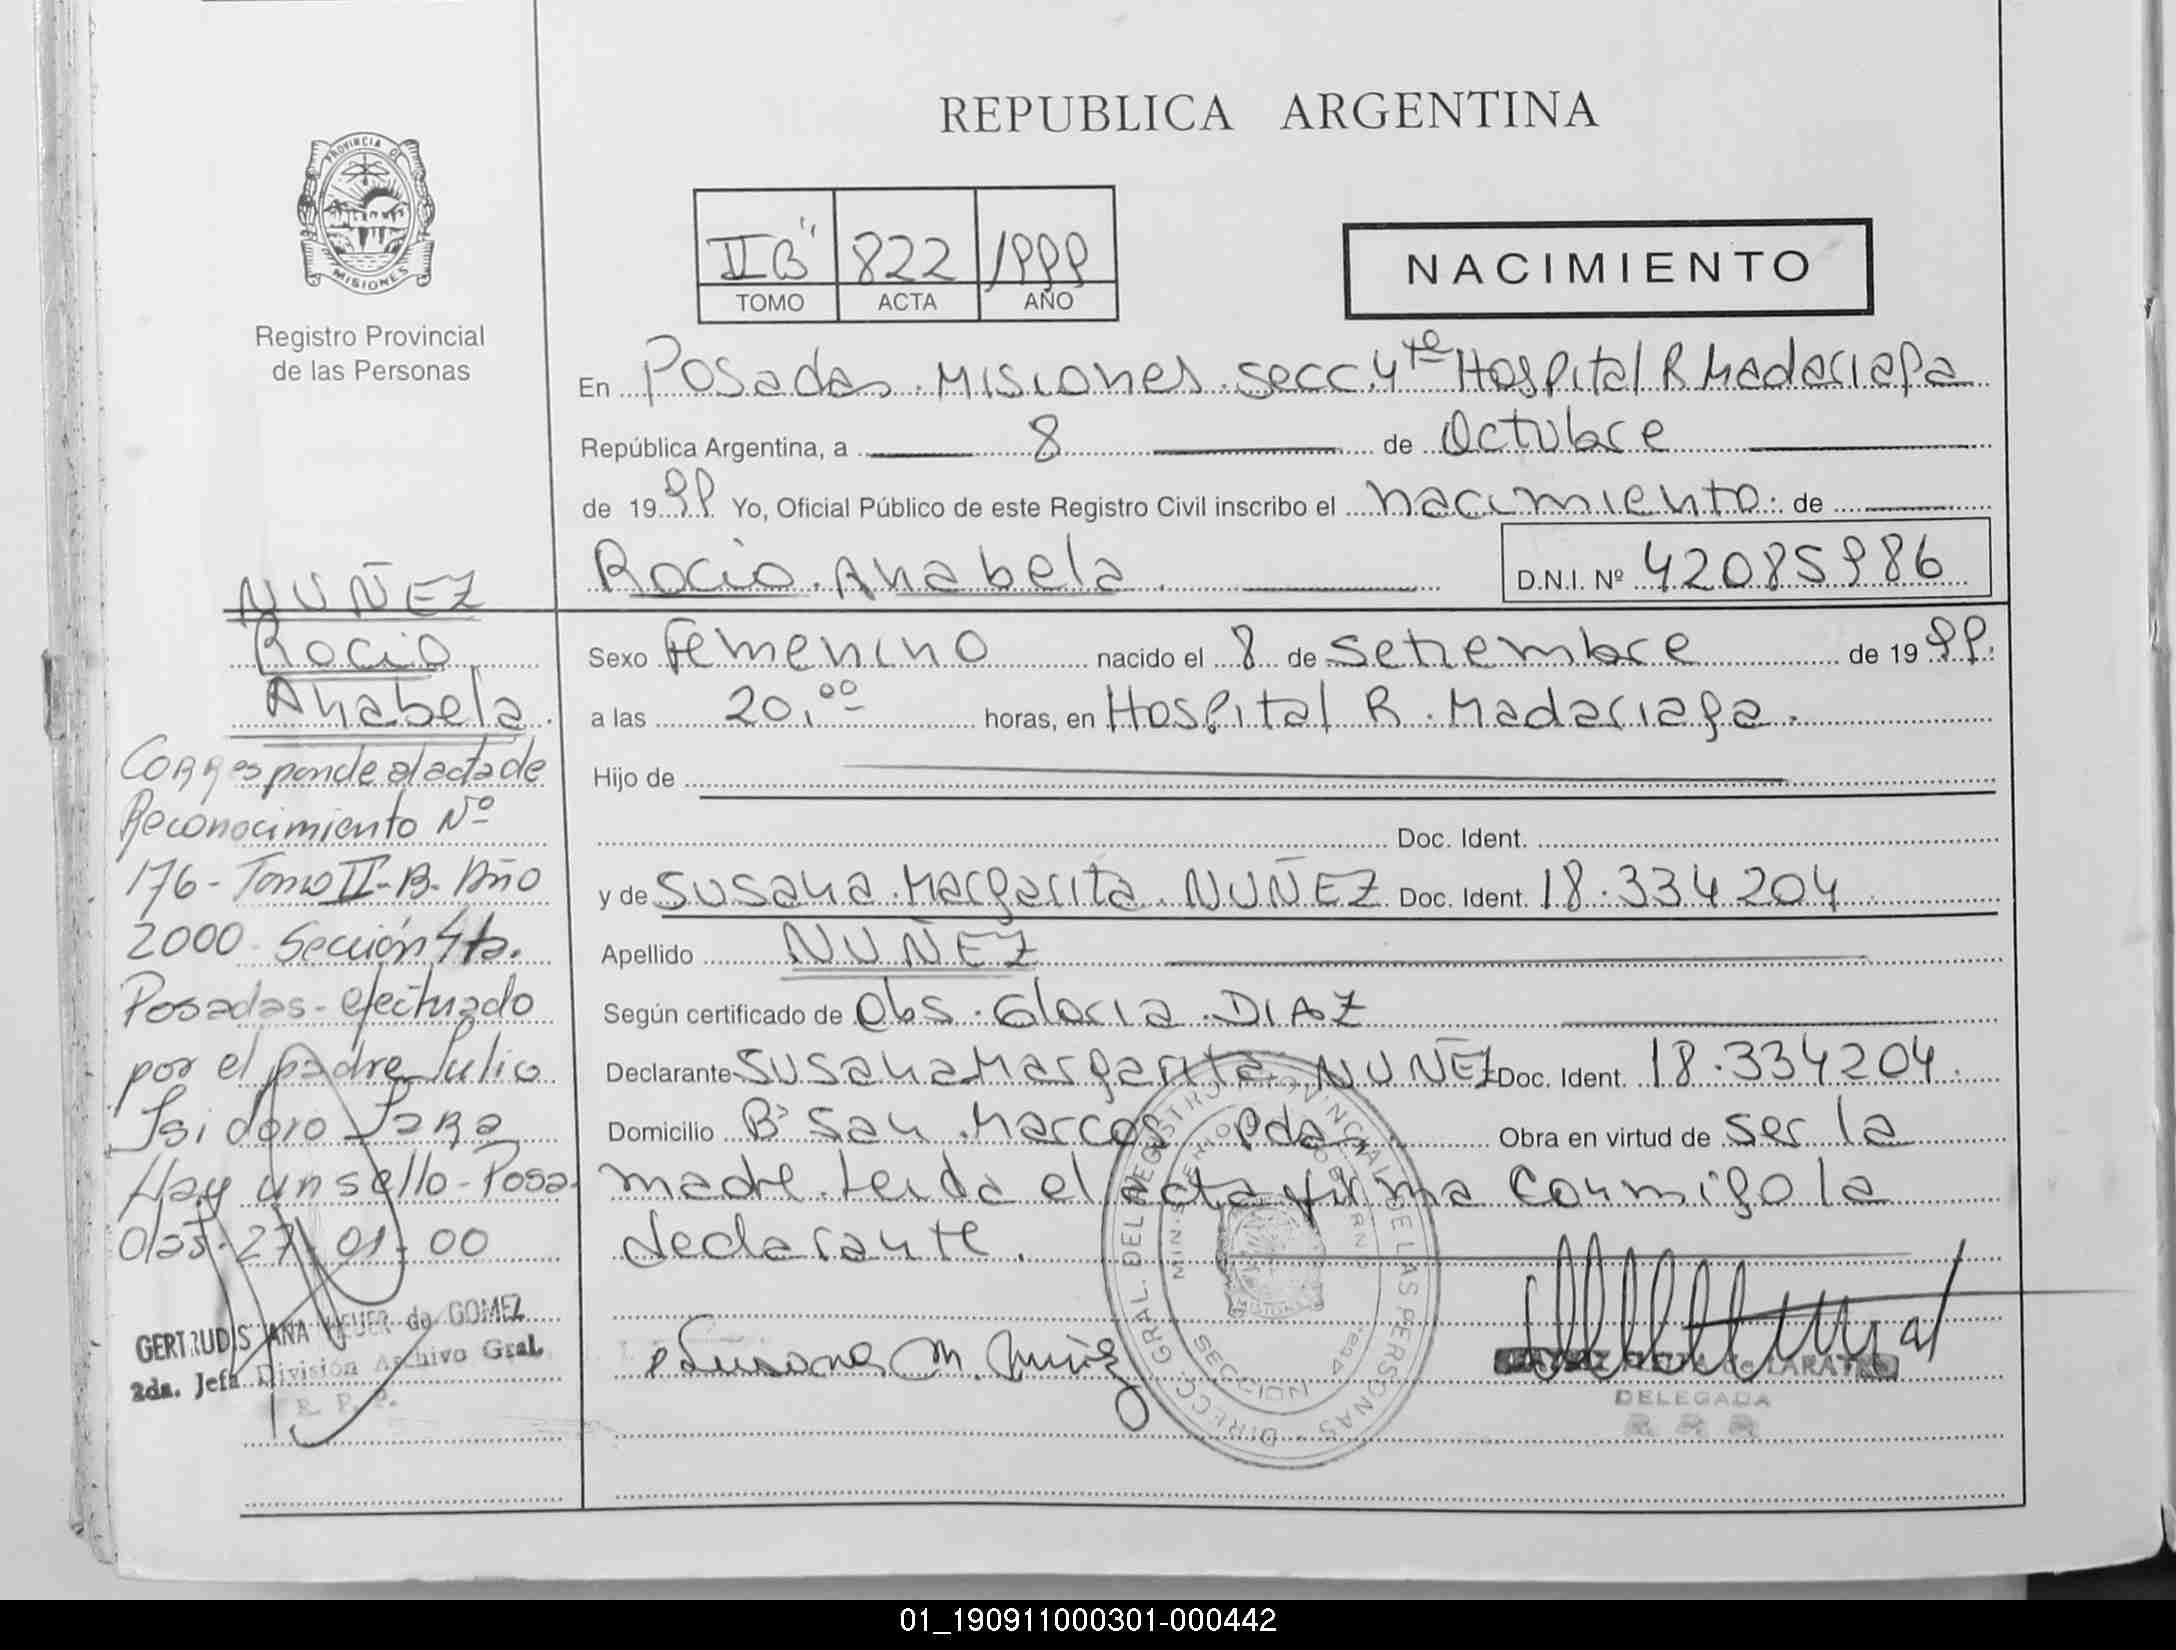 REPUBLICA ARGENTINA
PROVINCIA DE
MISIONES
Registro Provincial
de las Personas
II "B" 822 1999
TOMO ACTA AÑO
NACIMIENTO
En Posadas. Misiones. Secc. 4ta Hospital R Madariaga
República Argentina, a 8 de Octubre
de 1999 Yo, Oficial Público de este Registro Civil inscribo el nacimiento: de
Rocio. Anabela. D.N.I. Nº 42085986
Sexo Femenino nacido el 8 de Setiembre de 1999.
a las 20,00 horas, en Hospital R. Madariaga.
Hijo de
Doc. Ident.
y de Susana. Margarita. NUÑEZ Doc. Ident. 18.334204
Apellido NUÑEZ
Según certificado de Obs. Gloria. DIAZ
Declarante Susana Margarita NUÑEZ Doc. Ident. 18.334204.
Domicilio Bº San Marcos Pdas Obra en virtud de ser la
madre. Leida el acta firma conmigo la
declarante.
Susana M. Nuñez
DELEGADA
DIRECC. GRAL. DEL REGISTRO PROVINCIAL DE LAS PERSONAS
SECCION
NUÑEZ
Rocio
Anabela.
Corresponde al acta de
Reconocimiento Nº
176 - Tomo II - B - Año
2000 - Sección 4ta.
Posadas - efectuado
por el padre Julio
Isidoro JARA
Hay un sello - Posa
das. 27. 01. 00
GERTRUDIS ANA de GOMEZ
2da. Jefa División Archivo Gral.
R. P. P.
01_190911000301-000442